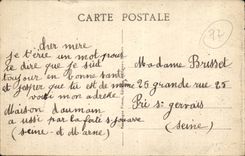 CARTE POSTALE
77
cher mere
je t'écrie un mot pour
te dire que je suit
toujour en bonne santé
et j'esper que tu est de même
voici mon adresse
Maison Daumain
a ussi par la ferté s/jouarre
(seine et Marne)
Madame Brisset
25 grande rue 25
Pré st gervais
(seine)